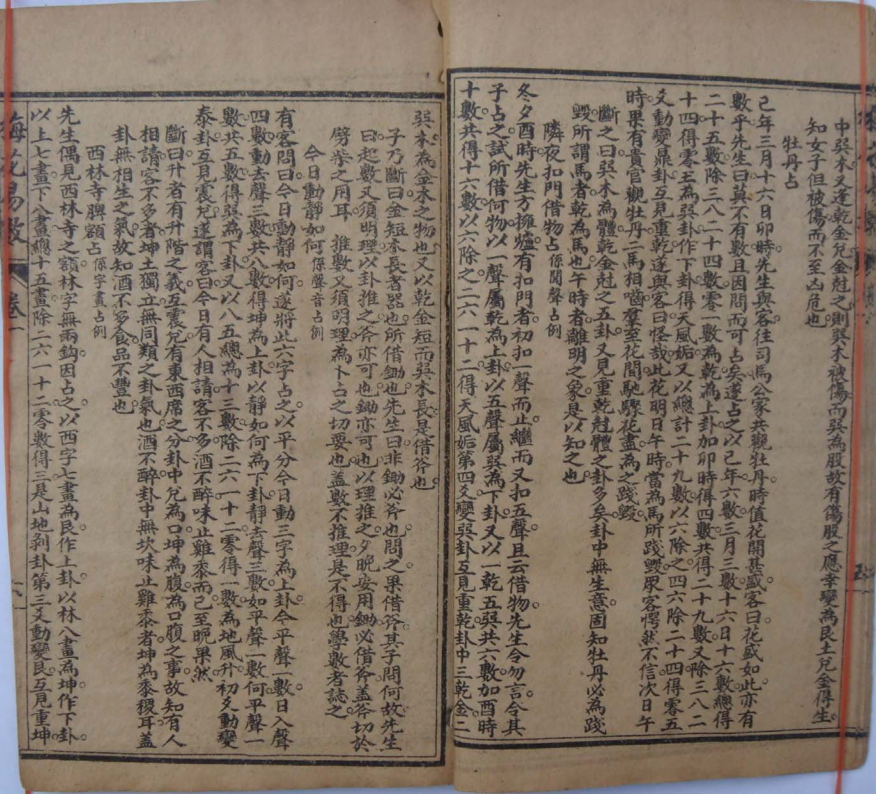 中巽木又逢乾金兌金尅之則巽木被傷而巽為股故有傷股之應幸變為艮土兌金得生
知女子但被傷而不至凶危也
牡丹占
己年三月十六日卯時先生與客往司馬公家共觀牡丹時值花開甚盛客曰花盛如此亦有
數乎先生曰莫不有數且因問而可占矣遂占之以己年六數三月三數十六日十六數總得
二十五數除三八二十四數零一數為乾為上卦加卯時得四數共得二十九數又除三八二
十四得零五為巽卦作下卦得天風姤又以總計二十九數以六除之四六除二十四得零五
爻動變鼎卦互見重乾遂與客曰怪哉此花明日午時當為馬所踐毀眾客愕然不信次日午
時果有貴官觀牡丹二馬相嚙羣至花間馳驟花盡為之踐毀
斷之曰巽木為體乾金尅之互卦又見重乾尅體之卦多矣卦中無生意固知牡丹必為踐
毀所謂馬者乾為馬也午時者離明之象是以知之也
隣夜扣門借物占係聞聲占例
冬夕酉時先生方擁爐有扣門者初扣一聲而止繼而又扣五聲且云借物先生令勿言令其
子占之試所借何物以一聲屬乾為上卦以五聲屬巽為下卦又以一乾五巽共六數加酉時
十數共得十六數以六除之二六一十二得天風姤第四爻變巽卦互見重乾卦中三乾金二
巽木為金木之物也又以乾金短而巽木長是借斧也
子乃斷曰金短木長者器也所借鋤也先生曰非鋤必斧也問之果借斧其子問何故先生
曰起數又須明理以卦推之斧亦可也鋤亦可也以理推之夕晚安用鋤必借斧蓋斧切於
劈柴之用耳 推數又須明理為卜占之切要也蓋數不推理是不得也學數者誌之
今日動靜如何係聲音占例
有客問曰今日動靜如何遂將此六字占之以平分今日動三字為上卦今平聲一數日入聲
四數動去聲三數共八數得坤為上卦以靜如何為下卦靜去聲三數如平聲一數何平聲一
數共五數得巽為下卦又以八五總為十三數除二六一十二零得一數為地風升初爻動變
泰卦互見震兌遂謂客曰今日有人相請客不多酒不醉味止雞黍而已至晚果然
斷曰升者有升階之義互震兌有東西席之分卦中兌為口坤為腹為口腹之事故知有人
相請客不多者坤土獨立無同類之卦氣也酒不醉卦中無坎味止雞黍者坤為黍稷耳蓋
卦無相生之氣故知酒不多食品不豐也
西林寺牌額占係字畫占例
先生偶見西林寺之額林字無兩鉤因占之以西字七畫為艮作上卦以林八畫為坤作下卦
以上七畫下八畫總十五畫除二六一十二零數得三是山地剝卦第三爻動變艮互見重坤
梅花易數
卷一
六